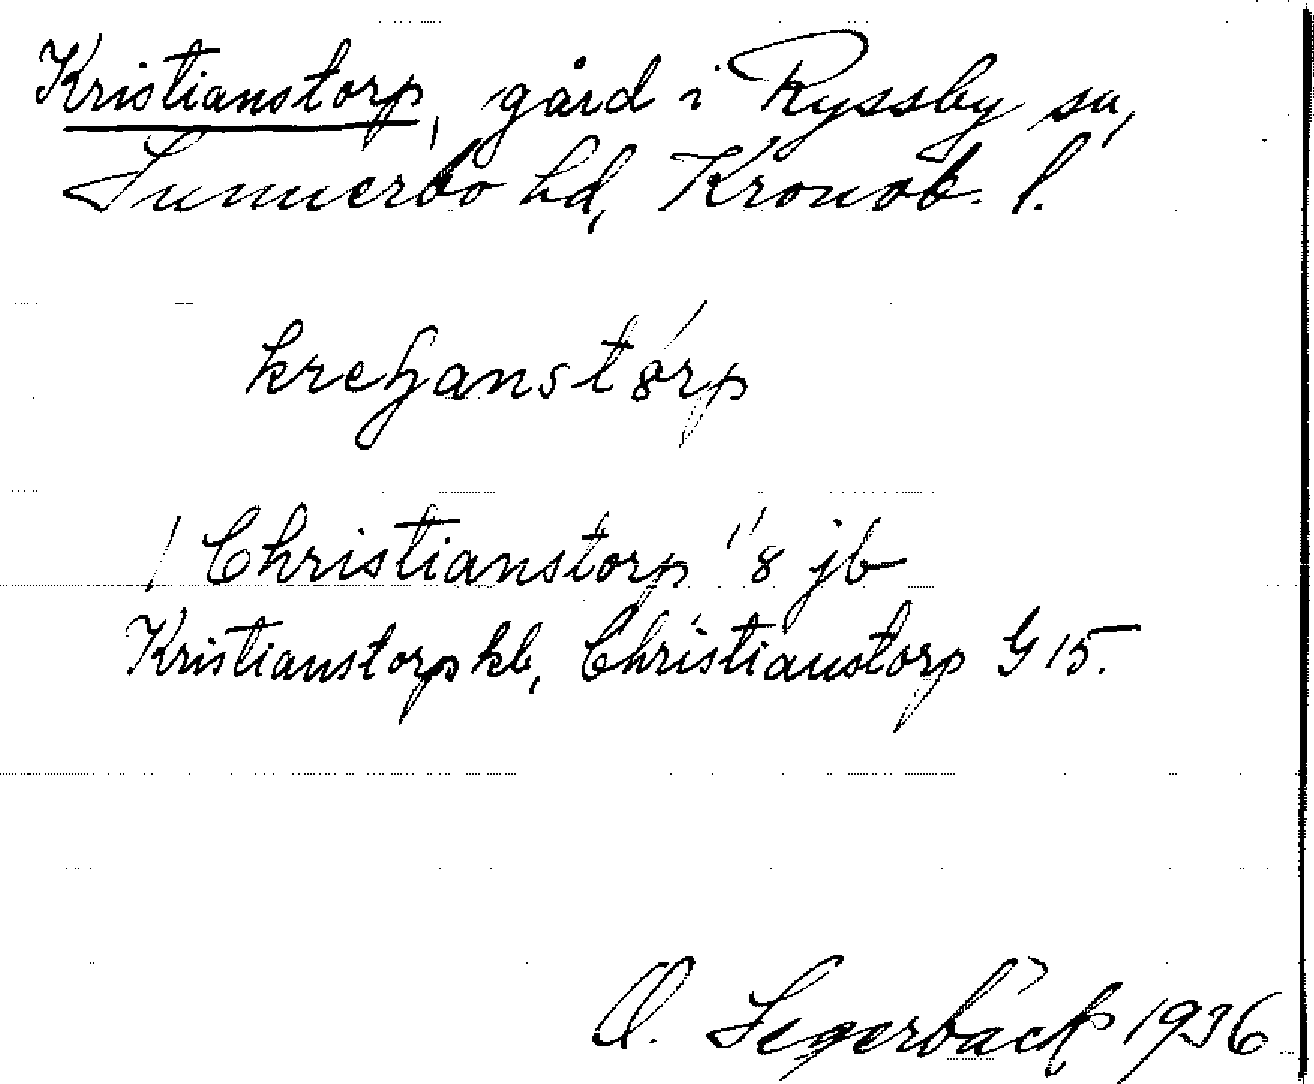 Kristianstorp, gård i Ryssby sn,
Sunnerbo hd, Kronob. l.
kreʃanstórp
/ Christianstorp " 8 jb
Kristianstorp kb, Christianstorp G 15.
O. Segerbäck 1936